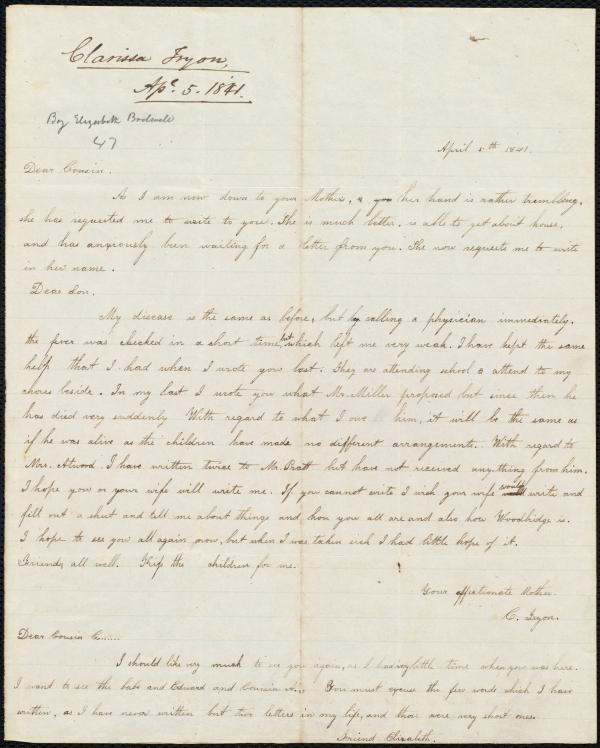 Clarissa Tryon,
Apl. 5. 1841.
Boy Elizabeth Bodwell
47
April 5th 1841.
Dear Cousin.
As I am now down to your Mothers, & you her hand is rather trembling,
she has requested me to write to you. She is much better, is able to get about house,
and has anxiously been waiting for a letter from you. She now requests me to write
in her name.
Dear Son.
My disease is the same as before, but by calling a physician immediately,
the fever was checked in a short time, but which left me very weak. I have kept the same
help that I had when I wrote you last. They are attending school & attend to my
chores beside. In my last I wrote you what Mr. Miller proposed but since then he
has died very suddenly With regard to what I owe him, it will be the same as
if he was alive as the children have made no different arrangements. With regard to
Mrs. Atwood I have written twice to Mr. Pratt but have not received any thing from him.
I hope you or your wife will write me. If you cannot write I wish your wife would write and
fill out a sheet and tell me about things and how you all are and also how Woodbridge is.
I hope to see you all again now, but when I was taken sick I had little hope of it.
Friends all well. Kiss the children for me.
Your affectionate Mother.
C. Tryon.
Dear Cousin C......
I should like very much to see you again, as I had very little time when you was here.
I want to see the babe and Edward and Cousin A... You must excuse the few words which I have
written, as I have never written but two letters in my life, and those were very short ones.
Friend Elizabeth.